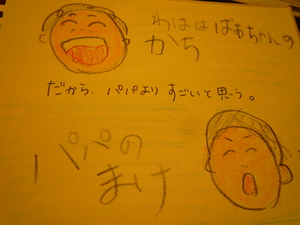 わははばあちゃんの
かち
だから、パパよりすごいと思う。
パパの
まけ